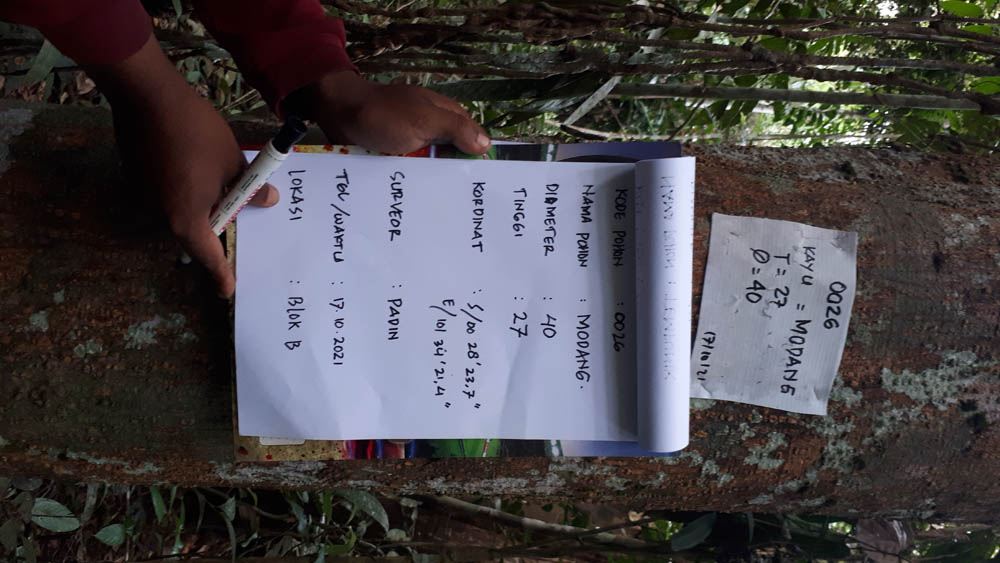 0026
KAYU = MODANG
T = 27
Ø = 40
17/10/21
KODE POHON : 0026
NAMA POHON : MODANG.
DIAMETER : 40
TINGGI : 27
KORDINAT : S/00 28' 23,7"
E/101 34' 21,4"
SURVEOR : PADIN
TGL/WAKTU : 17.10.2021
LOKASI : BLOK B